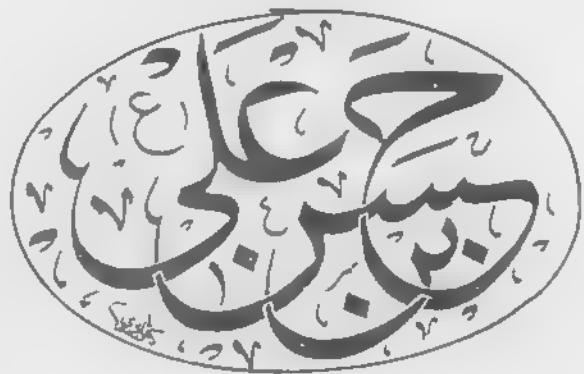 حسن بن علی ع